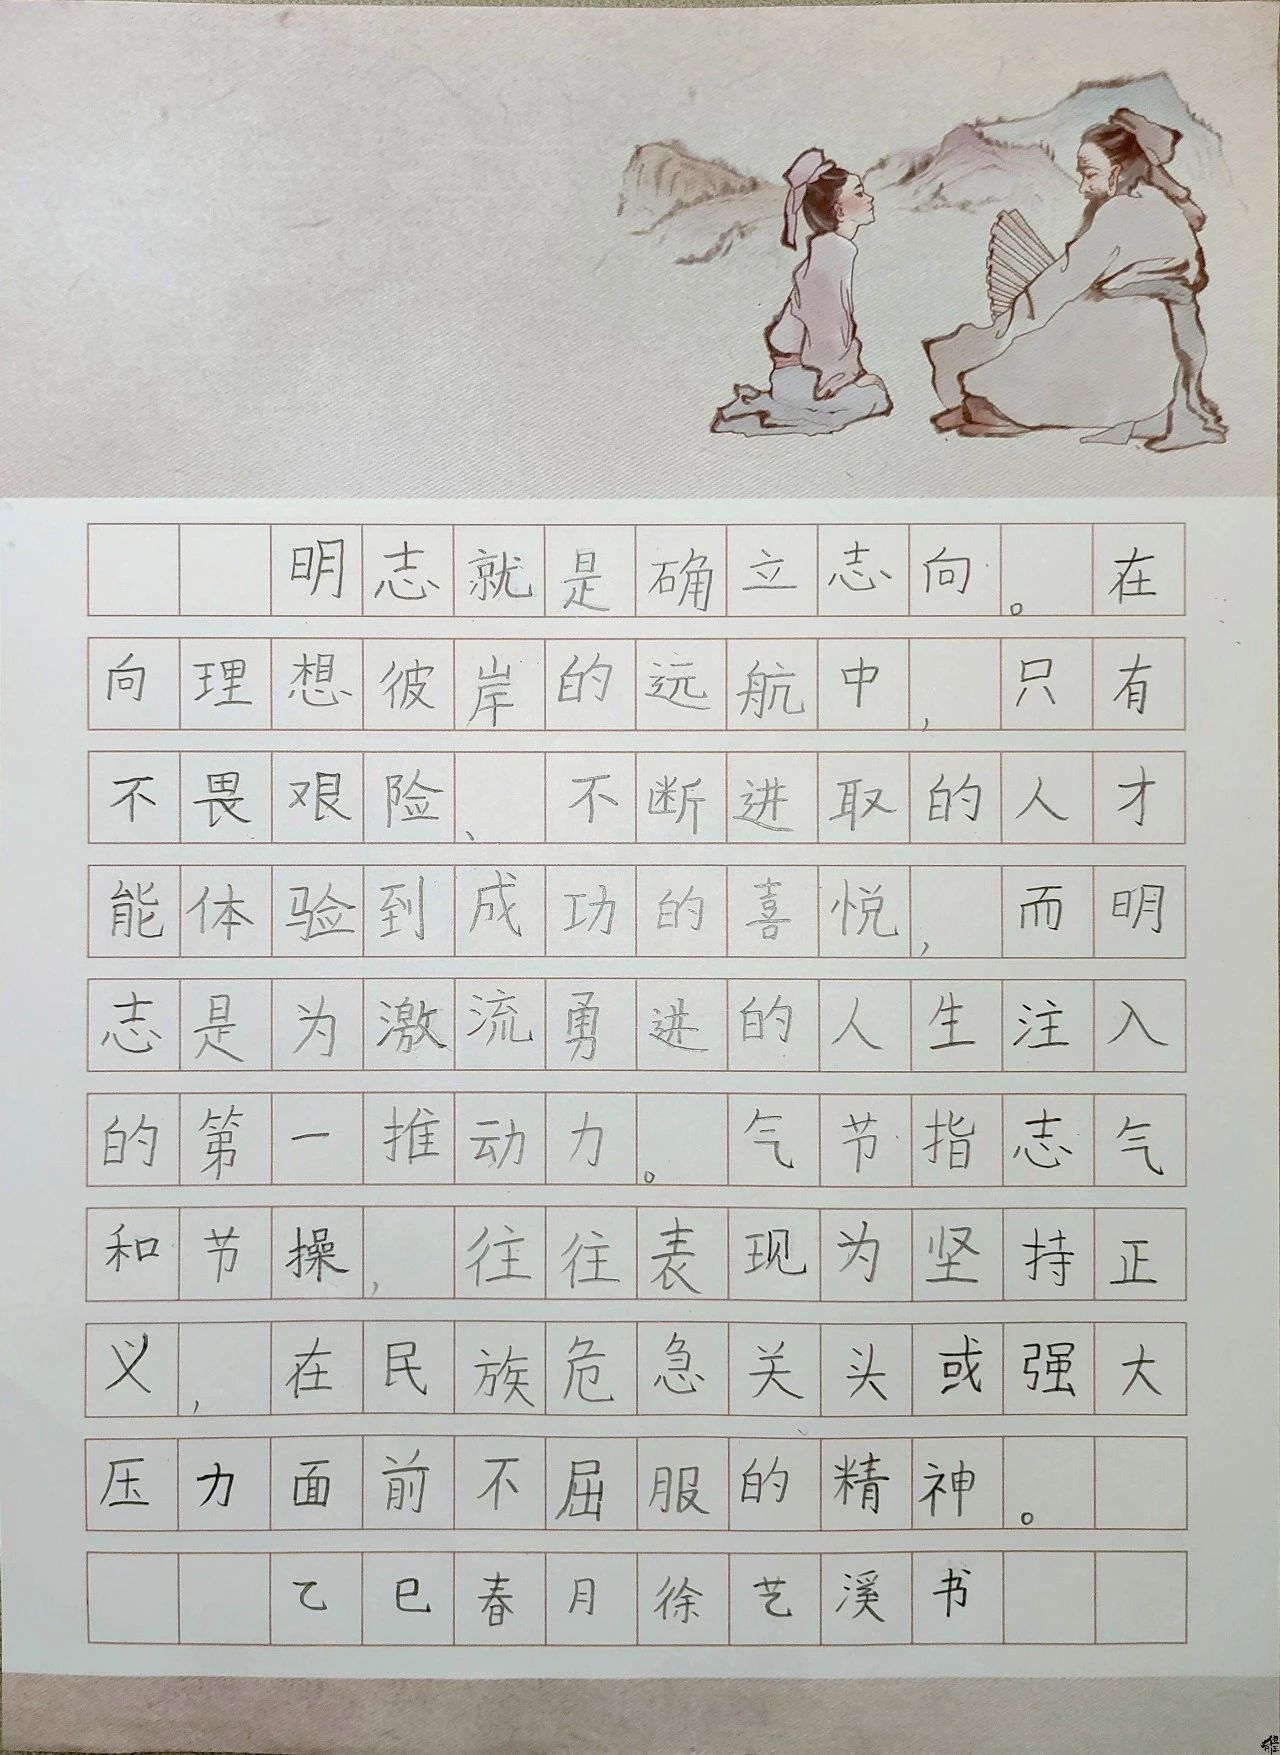 明志就是确立志向。在
向理想彼岸的远航中，只有
不畏艰险、不断进取的人才
能体验到成功的喜悦，而明
志是为激流勇进的人生注入
的第一推动力。气节指志气
和节操，往往表现为坚持正
义，在民族危急关头或强大
压力面前不屈服的精神。
乙巳春月徐艺溪书